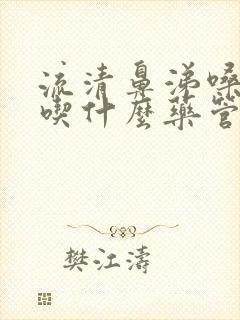 流清鼻涕嗓
喫什麼藥管
樊江濤